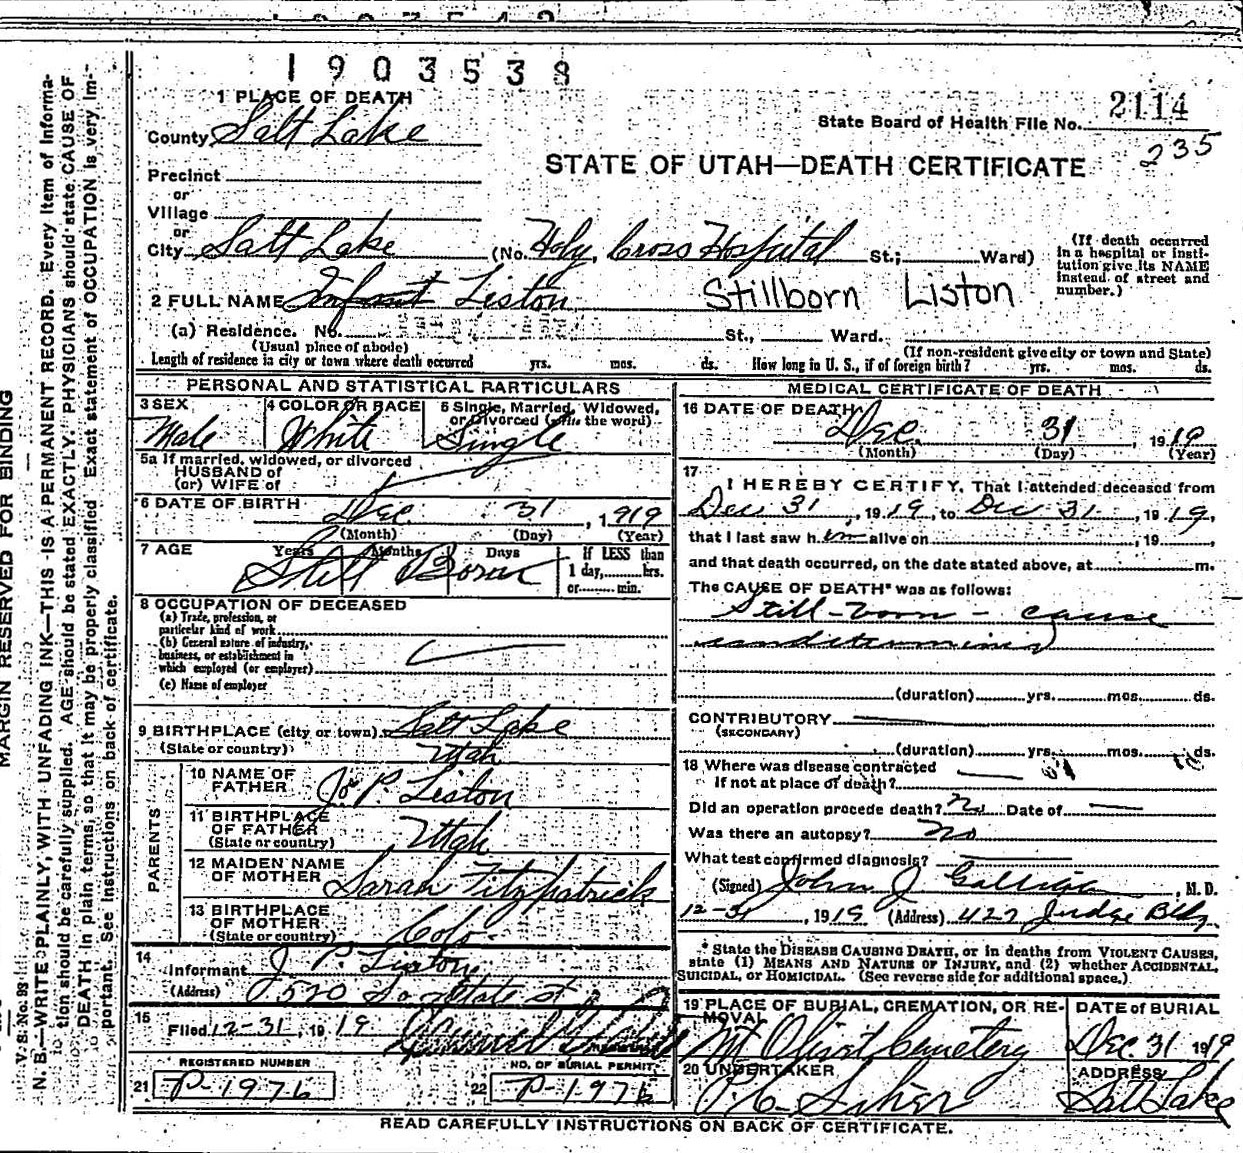 1903538
1 PLACE OF DEATH
County Salt Lake
State Board of Health File No. 2114
235
STATE OF UTAH—DEATH CERTIFICATE
Precinct
or
Village
or
City Salt Lake (No. Holy Cross Hospital St.; Ward)
(If death occurred in a hospital or institution give its NAME instead of street and number.)
2 FULL NAME Infant Liston Stillborn Liston
(a) Residence. No. St., Ward.
(Usual place of abode) (If non-resident give city or town and State)
Length of residence in city or town where death occurred yrs. mos. ds. How long in U. S., if of foreign birth? yrs. mos. ds.
PERSONAL AND STATISTICAL PARTICULARS
3 SEX 4 COLOR OR RACE 5 Single, Married, Widowed,
or Divorced (write the word)
Male White Single
5a If married, widowed, or divorced
HUSBAND of
(or) WIFE of
6 DATE OF BIRTH
Dec. 31, 1919
(Month) (Day) (Year)
7 AGE Years Months Days If LESS than
1 day, hrs.
or min.
Still Born
8 OCCUPATION OF DECEASED
(a) Trade, profession, or
particular kind of work
(b) General nature of industry,
business, or establishment in
which employed (or employer)
(c) Name of employer
9 BIRTHPLACE (city or town) Salt Lake
(State or country) Utah
PARENTS
10 NAME OF
FATHER Jos P. Liston
11 BIRTHPLACE
OF FATHER
(State or country) Utah
12 MAIDEN NAME
OF MOTHER Sarah Fitzpatrick
13 BIRTHPLACE
OF MOTHER
(State or country) Colo.
14
Informant J P Liston
(Address) 520 So State St
15
Filed 12-31, 1919
REGISTERED NUMBER NO. OF BURIAL PERMIT
21 P-1976 22 P-1976
MEDICAL CERTIFICATE OF DEATH
16 DATE OF DEATH
Dec. 31, 1919
(Month) (Day) (Year)
17
I HEREBY CERTIFY, That I attended deceased from
Dec 31, 1919, to Dec 31, 1919,
that I last saw him alive on , 19 ,
and that death occurred, on the date stated above, at m.
The CAUSE OF DEATH* was as follows:
Still-born - cause
undetermined
(duration) yrs. mos. ds.
CONTRIBUTORY
(SECONDARY)
(duration) yrs. mos. ds.
18 Where was disease contracted
If not at place of death?
Did an operation precede death? No Date of
Was there an autopsy? No
What test confirmed diagnosis?
(Signed) John J Galligan, M. D.
12-31, 1919 (Address) 427 Judge Bldg
* State the DISEASE CAUSING DEATH, or in deaths from VIOLENT CAUSES,
state (1) MEANS AND NATURE OF INJURY, and (2) whether ACCIDENTAL,
SUICIDAL, OR HOMICIDAL. (See reverse side for additional space.)
19 PLACE OF BURIAL, CREMATION, OR RE-
MOVAL DATE OF BURIAL
Mt Olivet Cemetery Dec. 31 1919
20 UNDERTAKER ADDRESS
Salt Lake
READ CAREFULLY INSTRUCTIONS ON BACK OF CERTIFICATE.
MARGIN RESERVED FOR BINDING
N. B.—WRITE PLAINLY, WITH UNFADING INK—THIS IS A PERMANENT RECORD. Every item of Informa-
tion should be carefully supplied. AGE should be stated EXACTLY. PHYSICIANS should state CAUSE OF
DEATH in plain terms, so that it may be properly classified. Exact statement of OCCUPATION is very im-
portant. See instructions on back of certificate.